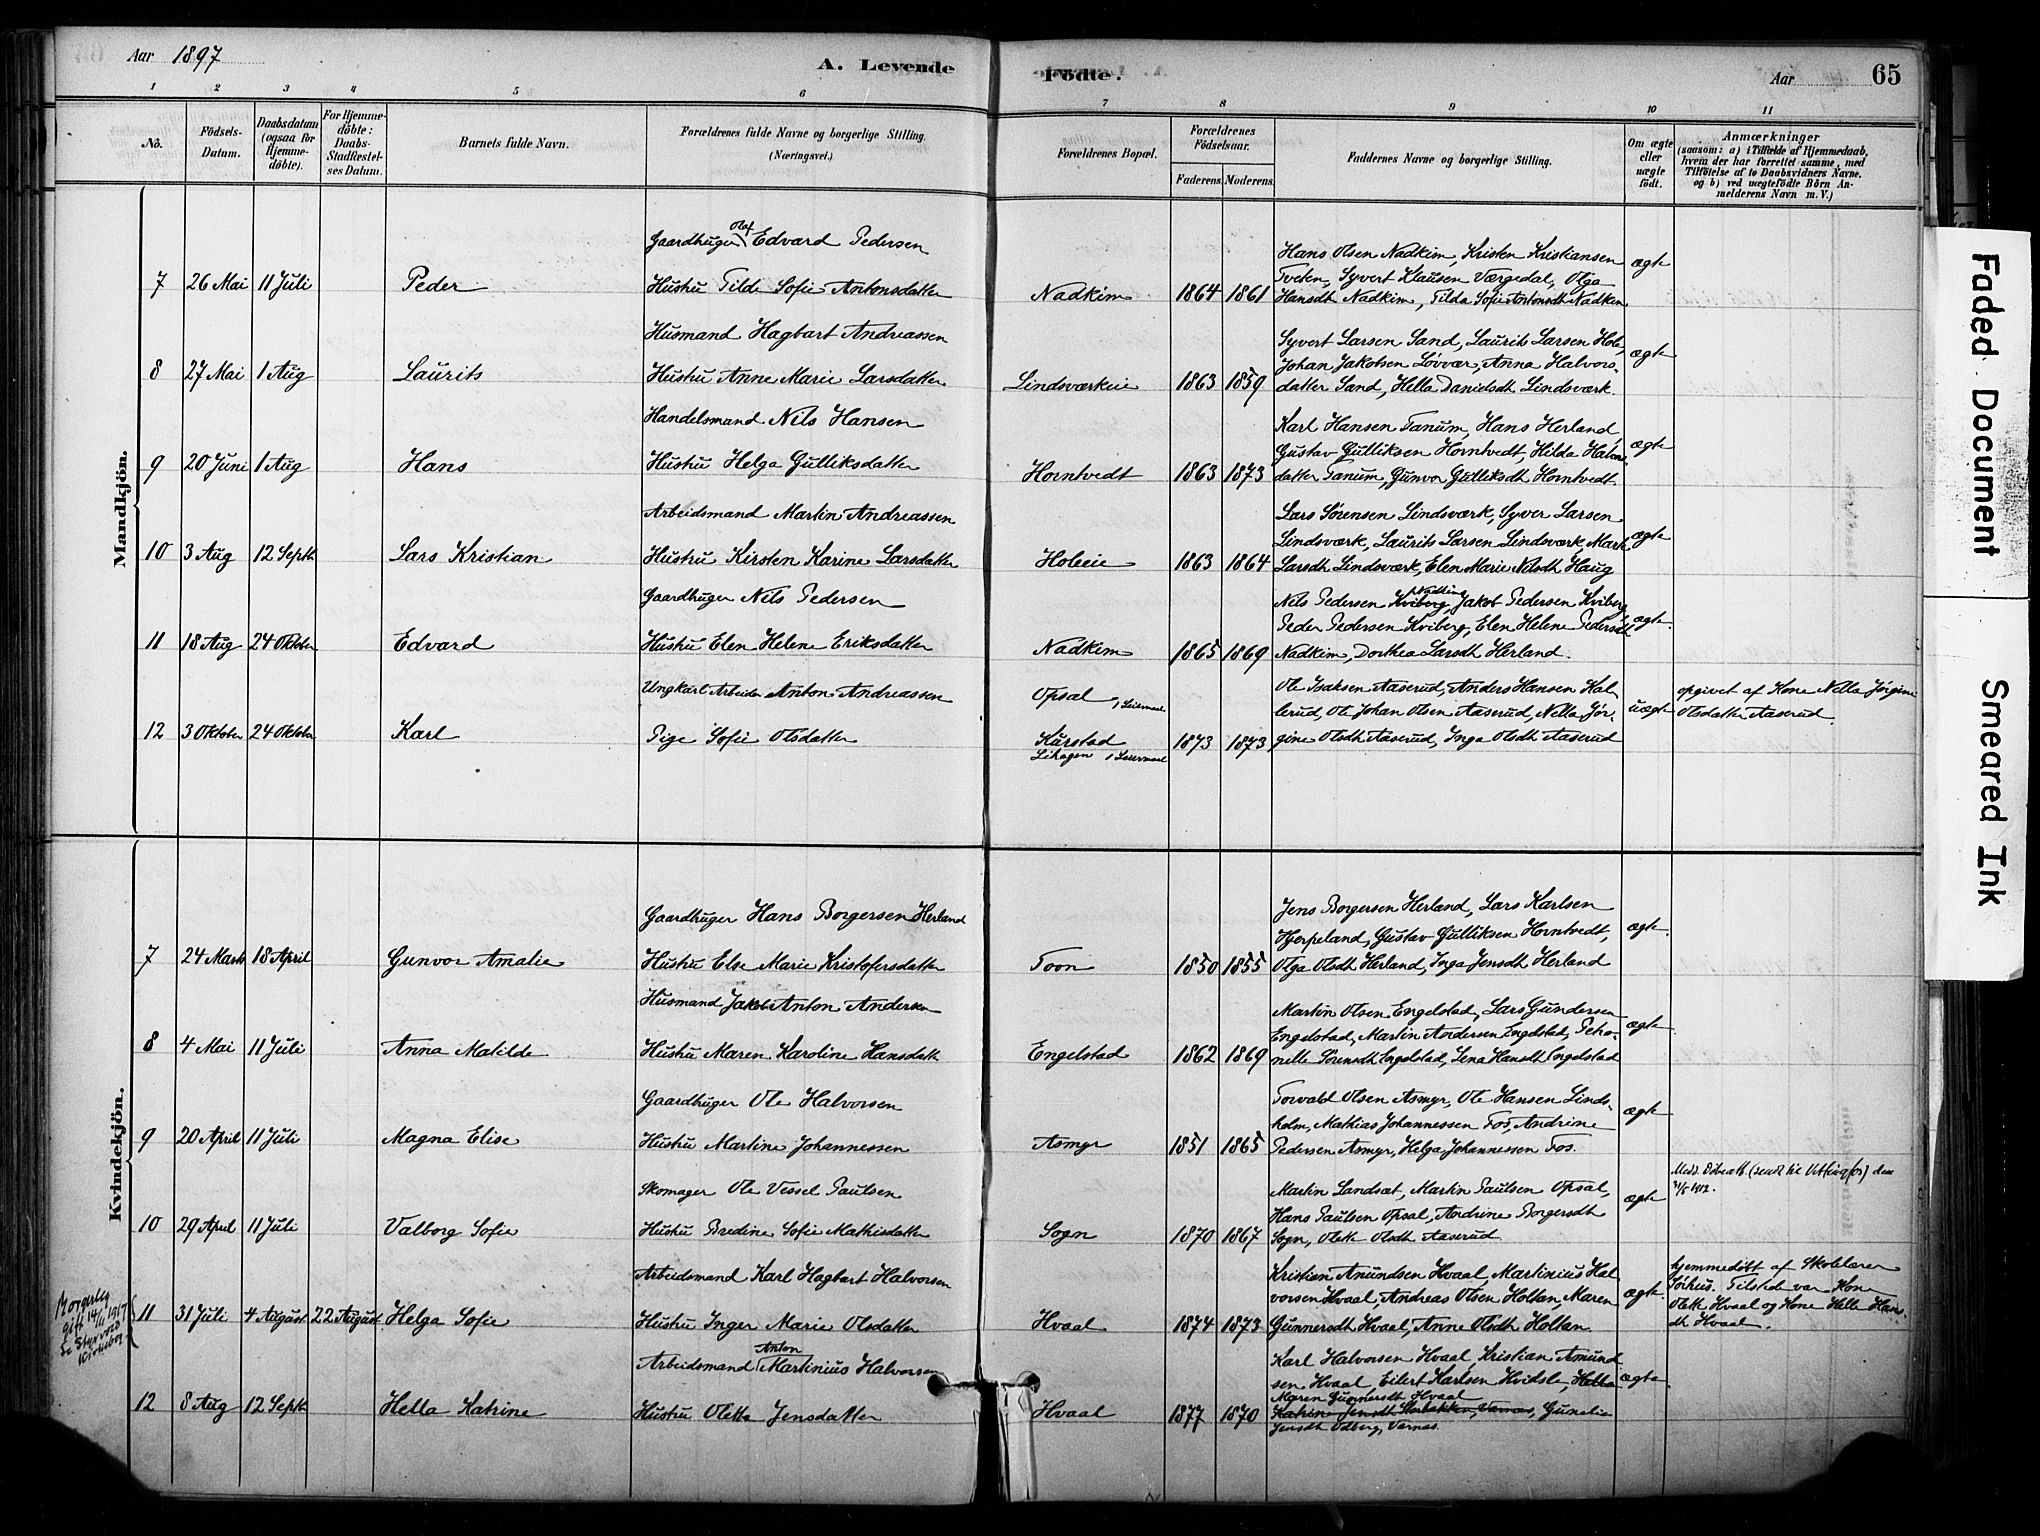 Aar 1897
A. Levende Fødte.
Aar 65
1 2 3 4 5 6 7 8 9 10 11
No.
Födsels-Datum.
Daabsdatum (ogsaa for Hjemme-döbte).
For Hjemme-döbte: Daabs-Stadfestel-ses Datum.
Barnets fulde Navn.
Forældrenes fulde Navne og borgerlige Stilling.
(Næringsvei.)
Forældrenes Bopæl.
Forældrenes Födselsaar.
Faderens. Moderens.
Faddernes Navne og borgerlige Stilling.
Om ægte eller uægte født.
Anmærkninger
(saasom: a) i Tilfælde af Hjemmedaab,
hvem der har forrettet samme, med
Tilföielse af to Daabsvidners Navne.
og b) ved uægtefödte Börn An-
melderens Navn m.V.)
Mandkjön.
Gaardbruger Olaf Edvard Pedersen
7 26 Mai 11 Juli Peder Hustru Tilde Sofie Antonsdatter Nadkim 1864 1861
Hans Olsen Nadkim, Kristen Kristiansen
Tveten, Syvert Klausen Værgedal, Olga
Hansdt Nadkim, Tilda Sofie Antonsdt Nadkim
ægte
Husmand Hagbart Andreassen
8 27 Mai 1 Aug Laurits Hustru Anne Marie Larsdatter Lindsværkeie 1863 1859
Syvert Larsen Sand, Laurits Larsen Hole,
Johan Jakobsen Løvvar, Anna Halvors-
datter Sand, Hella Danielsdt Lindsværk.
ægte
Handelsmand Nils Hansen
9 20 Juni 1 Aug Hans Hustru Helga Gulliksdatter Horntvedt 1863 1873
Karl Hansen Tanum, Hans Herland,
Gustav Gulliksen Horntvedt, Hilda Halvors-
datter Tanum, Gunvor Gulliksdt Horntvedt.
ægte
Arbeidsmand Martin Andreassen
10 3 Aug 12 Septb Lars Kristian Hustru Kirsten Karine Larsdatter Holeeie 1863 1864
Lars Sørensen Lindsværk, Syver Larsen
Lindsværk, Laurits Larsen Lindsværk, Marte
Larsdt Lindsværk, Elen Marie Nilsdt Haug
ægte
Gaardbruger Nils Pedersen
11 18 Aug 24 Oktober Edvard Hustru Elen Helene Eriksdatter Nadkim 1865 1869
Nils Pedersen Kviberg, Jakob Pedersen Kviberg,
Peder Pedersen Kviberg, Elen Helene Pedersdt
Nadkim, Dorthea Larsdt Herland.
ægte
Ungkarl Arbeider Anton Andreassen
Opsal
12 3 Oktober 24 Oktober Karl Pige Sofie Olsdatter Kurstad 1873 1873
Lihagen
Ole Isaksen Aaserud, Anders Hansen Kal-
lerud, Ole Johan Olsen Aaserud, Nella Jør-
gine Olsdt Aaserud, Inga Olsdt Aaserud
uægte
opgivet af Kone Nella Jørgine
Olsdatter Aaserud.
Kvindekjön.
Gaardbruger Hans Borgersen Herland
7 24 Marts 18 April Gunvor Amalie Hustru Else Marie Kristofersdatter Foon 1850 1855
Jens Borgersen Herland, Lars Karlsen
Hjerpeland, Gustav Gulliksen Horntvedt,
Olga Olsdt Herland, Inga Jensdt Herland
ægte.
Husmand Jakob Anton Andersen
8 4 Mai 11 Juli Anna Matilde Hustru Maren Karoline Hansdatt Engelstad 1862 1869
Martin Olsen Engelstad, Lars Gundersen
Engelstad, Martin Andersen Engelstad, Petro-
nelle Sørensdt Engelstad, Lena Hansdt Engelstad
ægte
Gaardbruger Ole Halvorsen
9 20 April 11 Juli Magna Elise Hustru Martine Johannessen Asmyr 1851 1865
Torvald Olsen Asmyr, Ole Hansen Linds-
holm, Mathias Johannessen Fos, Andrine
Pedersen Asmyr, Helga Johannessen Fos.
ægte
Skomager Ole Vessel Paulsen
10 29 April 11 Juli Valborg Sofie Hustru Bredine Sofie Mathisdatter Sogn 1870 1867
Martin Landsæt, Martin Paulsen Opsal,
Hans Paulsen Opsal, Andrine Borgersdt
Sogn, Olette Olsdt Aaserud.
ægte
Medd. Døbeatt. (sendt til Vittingfos) den
21/5 1912.
Arbeidsmand Karl Hagbart Halvorsen
Borgerlig gift 14/11 1917
11 31 Juli 4 August 22 August Helga Sofie Hustru Inger Marie Olsdatter Hvaal 1874 1873
Kristian Amundsen Hvaal, Martinius Hal-
vorsen Hvaal, Andreas Olsen Holtan, Maren
Gunnersdt Hvaal, Anne Olsdt Holtan.
ægte.
hjemmedøbt af Skolelærer
Jørhus. Tilstede var Kone
Olette Hvaal og Kone Helle Hans-
dt Hvaal.
Arbeidsmand Anton Martinius Halvorsen
12 8 Aug 12 Septb Hella Katrine Hustru Oletta Jensdatter Hvaal 1877 1870
Karl Halvorsen Hvaal, Kristian Amund-
sen Hvaal, Eilert Karlsen Hvitsle, Hella
Maren Gunnersdt Hvaal
Katrine Jensdt Varnes, Gunelie
Jensdt Odberg, Varnes.
ægte
Faded Document
Smeared Ink